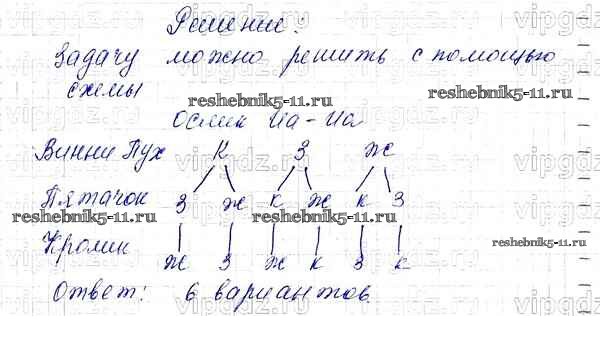 Решение:
Задачу можно решить с помощью
схемы
reshebnik5-11.ru
reshebnik5-11.ru
Ослик Иа-Иа
Винни Пух К З Ж
Пятачок З Ж К Ж К З
reshebnik5-11.ru
reshebnik5-11.ru
reshebnik5-11.ru
Кролик
Ж З Ж К З К
Ответ: 6 вариантов
vipgdz.ru